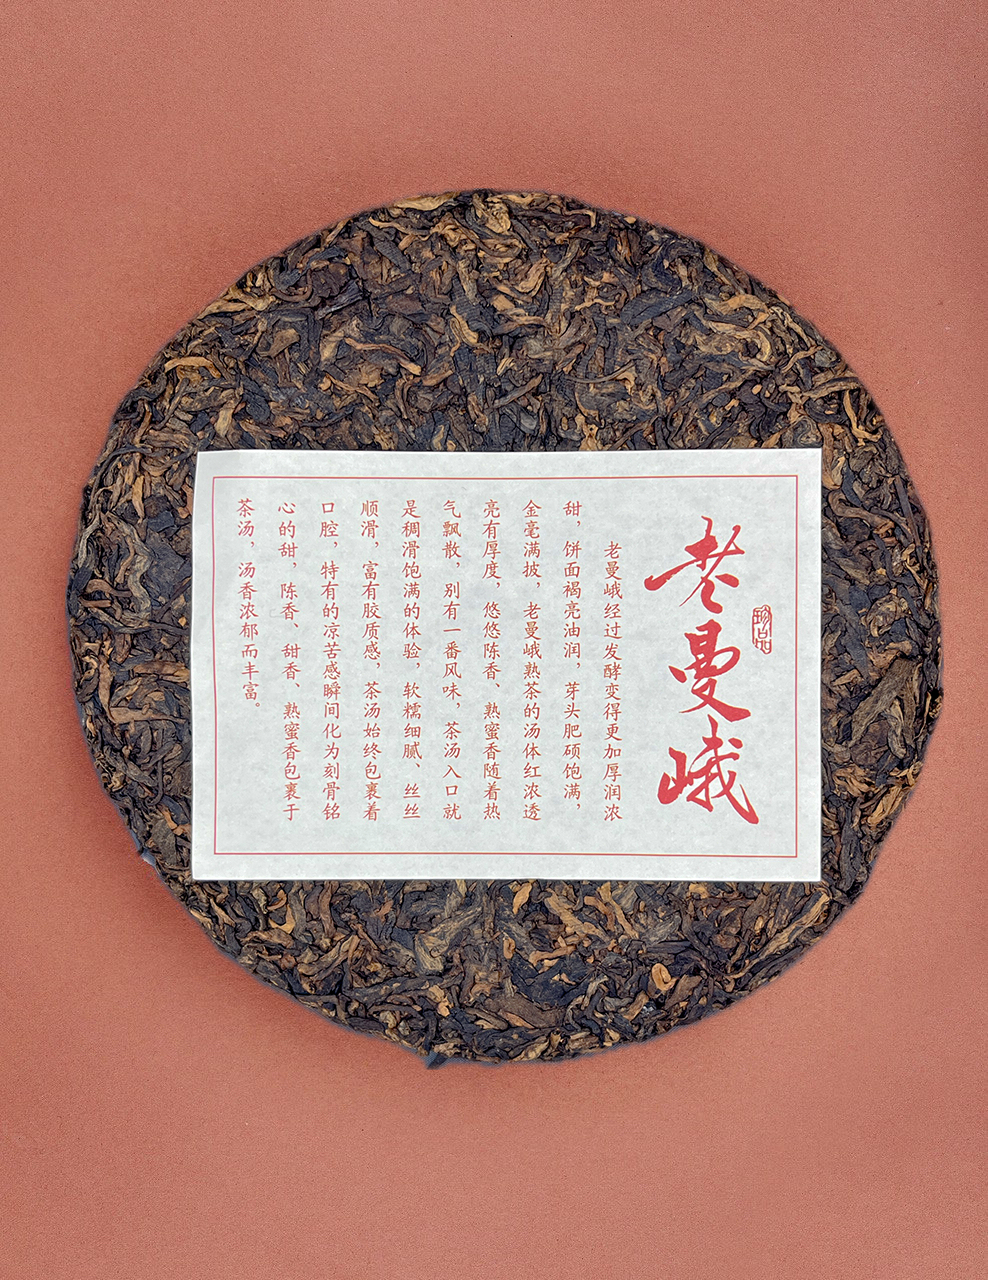 老曼峨
珍品
老曼峨经过发酵变得更加厚润浓
甜，饼面褐亮油润，芽头肥硕饱满，
金毫满披，老曼峨熟茶的汤体红浓透
亮有厚度，悠悠陈香、熟蜜香随着热
气飘散，别有一番风味，茶汤入口就
是稠滑饱满的体验，软糯细腻、丝丝
顺滑，富有胶质感，茶汤始终包裹着
口腔，特有的凉苦感瞬间化为刻骨铭
心的甜，陈香、甜香、熟蜜香包裹于
茶汤，汤香浓郁而丰富。